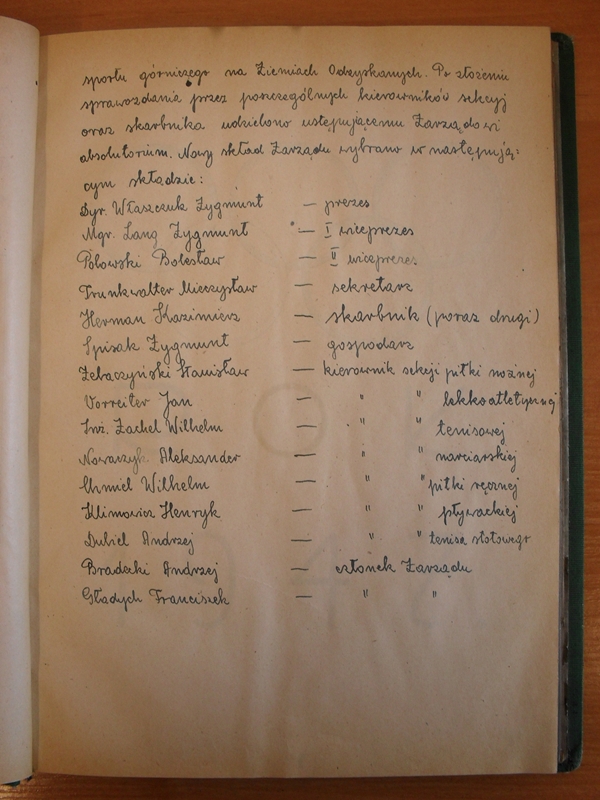 sportu górniczego na Ziemiach Odzyskanych. Po złożeniu
sprawozdania przez poszczególnych kierowników sekcyj
oraz skarbnika udzielono ustępującemu Zarządowi
absolutorium. Nowy skład Zarządu wybrano w następują=
cym składzie:
Dyr. Właszczuk Zygmunt — prezes
Mgr. Lang Zygmunt — I wiceprezes
Polowski Bolesław — II wiceprezes
Trunkwalter Mieczysław — sekretarz
Herman Kazimierz — skarbnik (poraz drugi)
Spisak Zygmunt — gospodarz
Żebaczyński Stanisław — kierownik sekcji piłki nożnej
Vorreiter Jan — " " lekkoatletycznej
Inż. Zachel Wilhelm — " " tenisowej
Nowaczyk Aleksander — " " narciarskiej
Chmiel Wilhelm — " " piłki ręcznej
Klimowicz Henryk — " " pływackiej
Dubiel Andrzej — " " tenisa stołowego
Bradecki Andrzej — członek Zarządu
Gładych Franciszek — " "